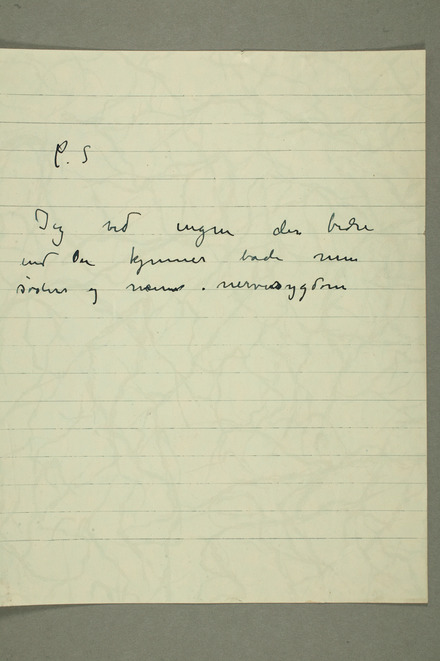 P. S
Jeg ved ingen der bedre
end De kjenner både min
søsters og nervesygdom